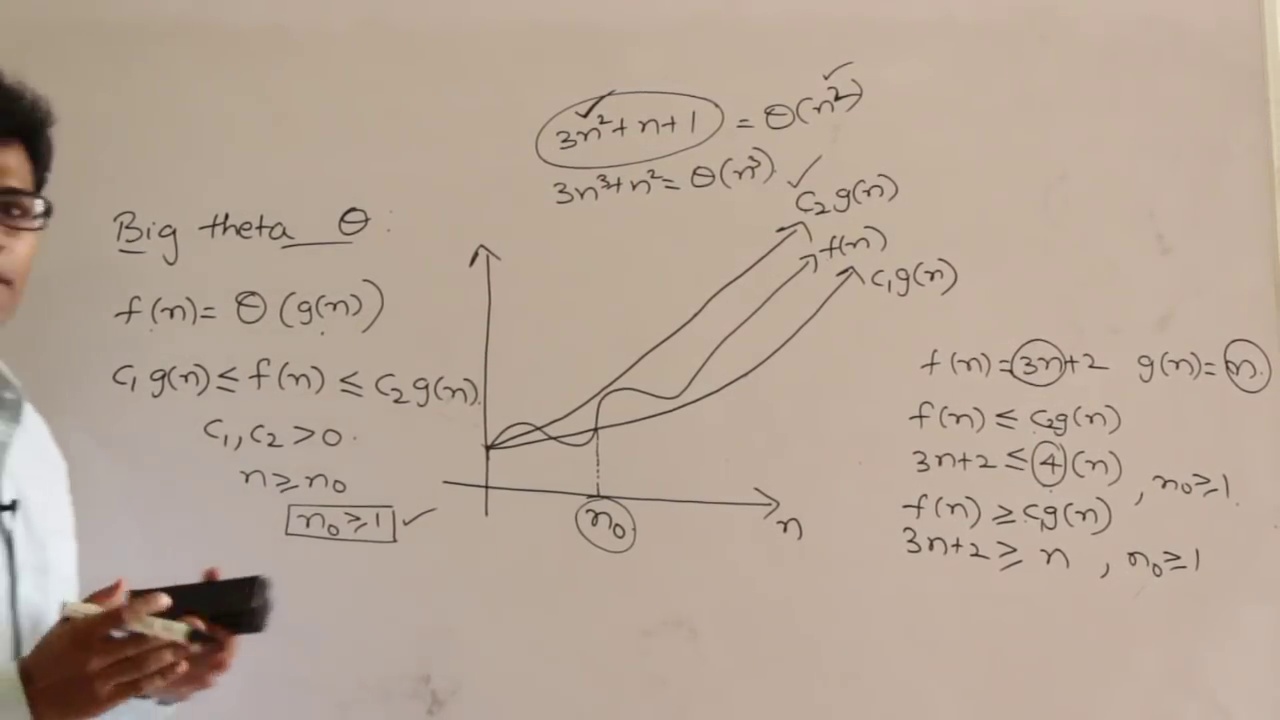 3n²+n+1 = Θ(n²)
3n³+n² = Θ(n³)
Big theta Θ :
f(n) = Θ (g(n))
c₁ g(n) ≤ f(n) ≤ c₂ g(n).
c₁, c₂ > 0.
n ≥ n₀
n₀ ≥ 1
c₂ g(n)
f(n)
c₁ g(n)
n₀
n
f(n) = 3n+2 g(n) = n.
f(n) ≤ c₂g(n)
3n+2 ≤ 4(n) , n₀ ≥ 1.
f(n) ≥ c₁g(n)
3n+2 ≥ n , n₀ ≥ 1